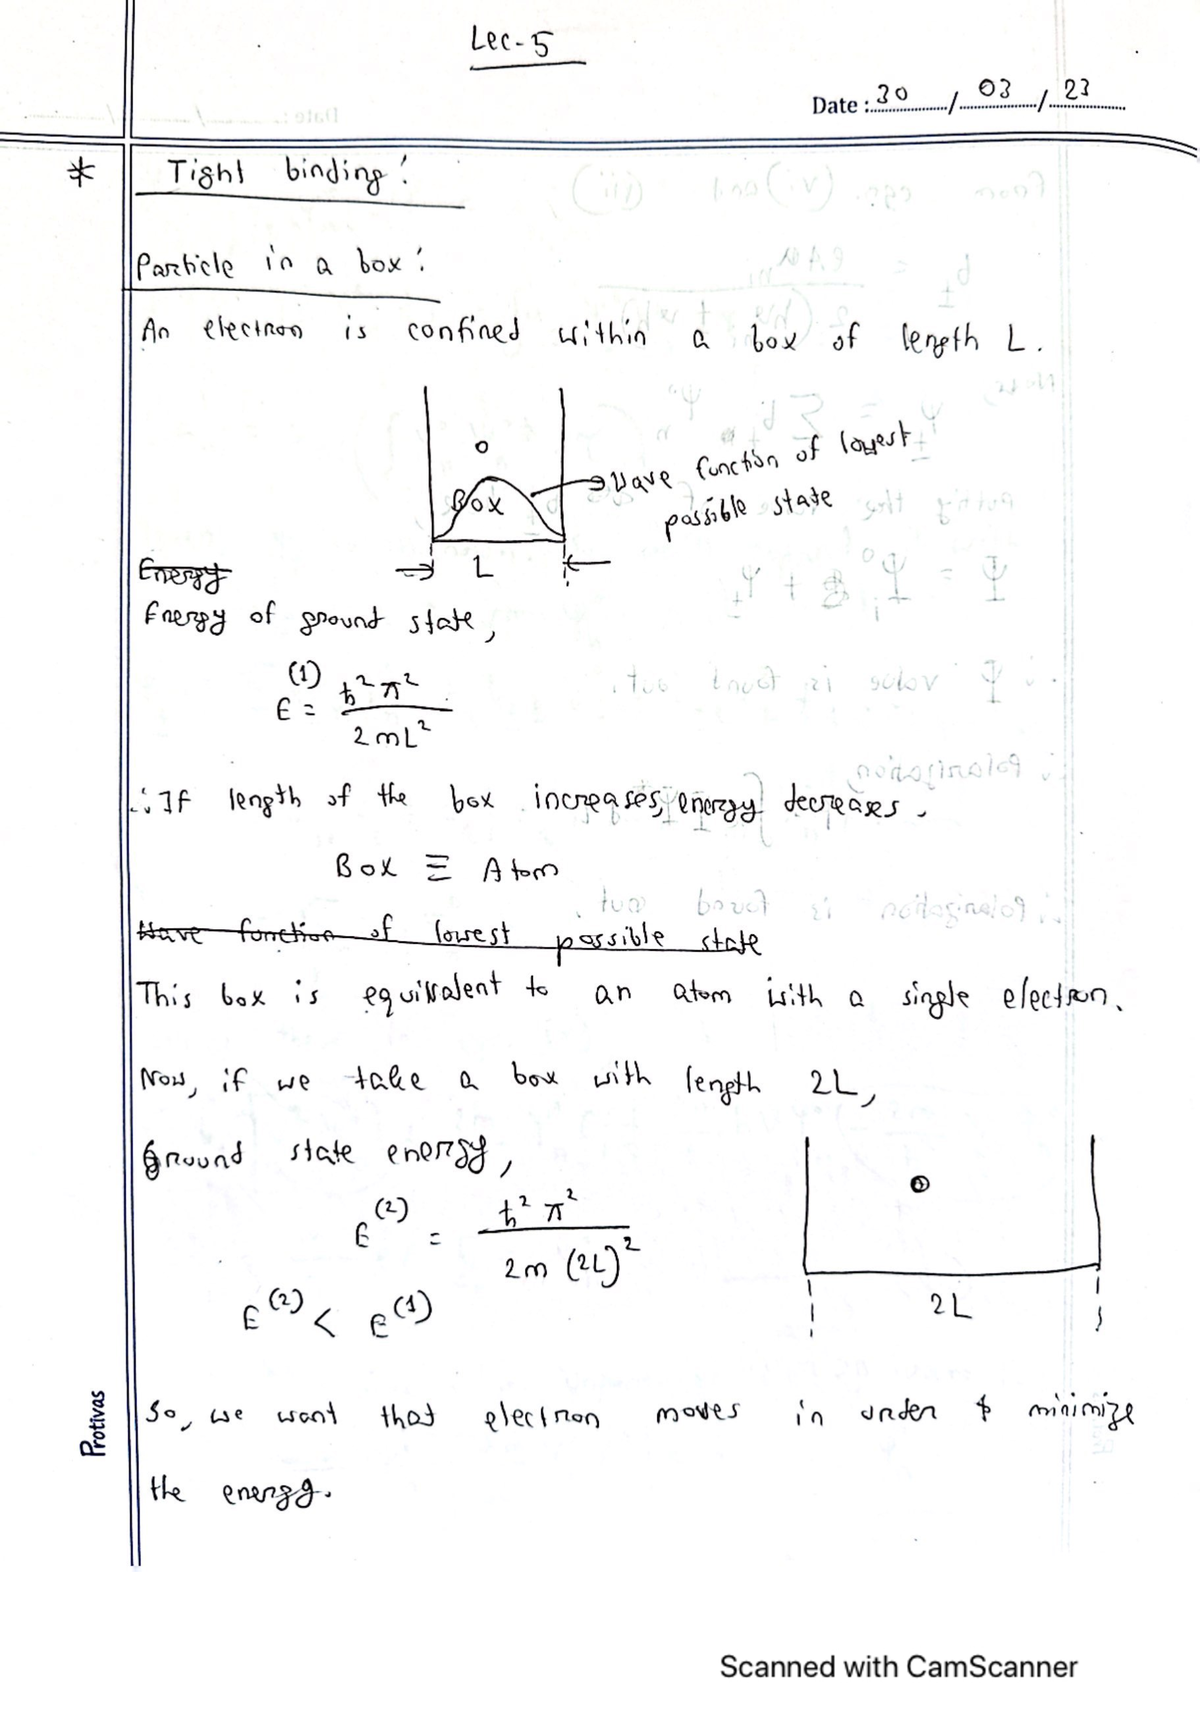 Lec-5
Date : 30 / 03 / 23
* Tight binding:
Particle in a box:
An electron is confined within a box of length L.
Box
→ Wave function of lowest
possible state
→ L ←
Energy
Energy of ground state,
E⁽¹⁾ = ħ²π² / 2mL²
∴ If length of the box increases, energy decreases.
Box ≡ Atom
Wave function of lowest possible state
This box is equivalent to an atom with a single electron.
Now, if we take a box with length 2L,
Ground state energy,
E⁽²⁾ = ħ²π² / 2m (2L)²
2L
E⁽²⁾ < E⁽¹⁾
So, we want that electron moves in order to minimize
the energy.
Protivas
Scanned with CamScanner